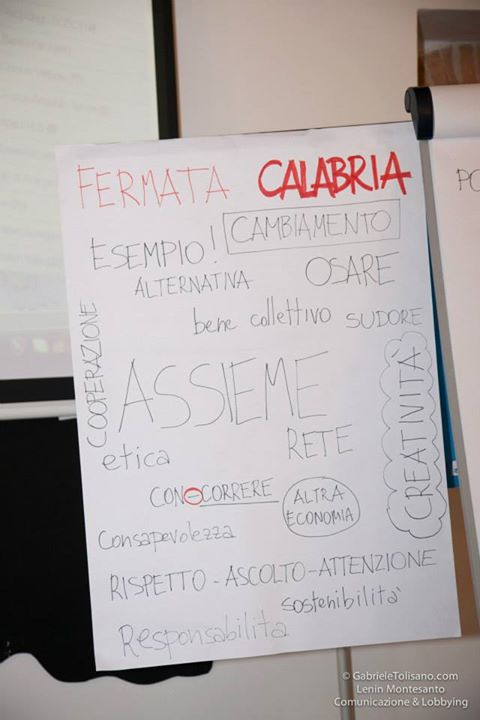 FERMATA CALABRIA
ESEMPIO! CAMBIAMENTO
ALTERNATIVA OSARE
bene collettivo SUDORE
COOPERAZIONE
ASSIEME
CREATIVITÀ
etica RETE
CON-CORRERE ALTRA
ECONOMIA
Consapevolezza
RISPETTO - ASCOLTO - ATTENZIONE
sostenibilità
Responsabilità
PO
© GabrieleTolisano.com
Lenin Montesanto
Comunicazione & Lobbying